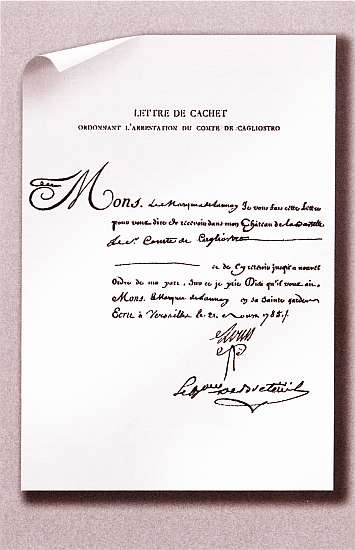 LETTRE DE CACHET
ORDONNANT L'ARRESTATION DU COMTE DE CAGLIOSTRO
Mons. Le Marquis de Launay Je vous fais cette Lettre
pour vous dire de recevoir dans mon Château de la Bastille
Le Sr. Comte de Cagliostro
et de l'y retenir jusqu'à nouvel
Ordre de ma part. Sur ce je prie Dieu qu'il vous ait
Mons. le Marquis de Launay en sa Sainte garde
Ecrit à Versailles le 21. 1785./.
Louis
Le Bon De Breteuil